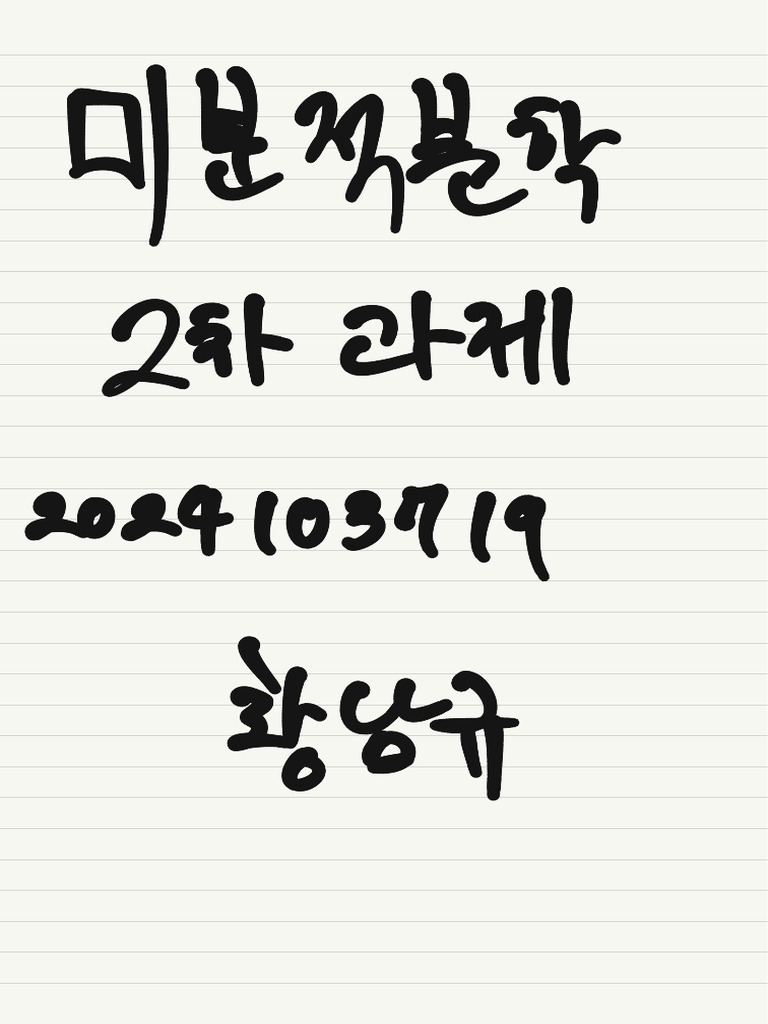 미분적분학
2차 과제
2024103719
황남규